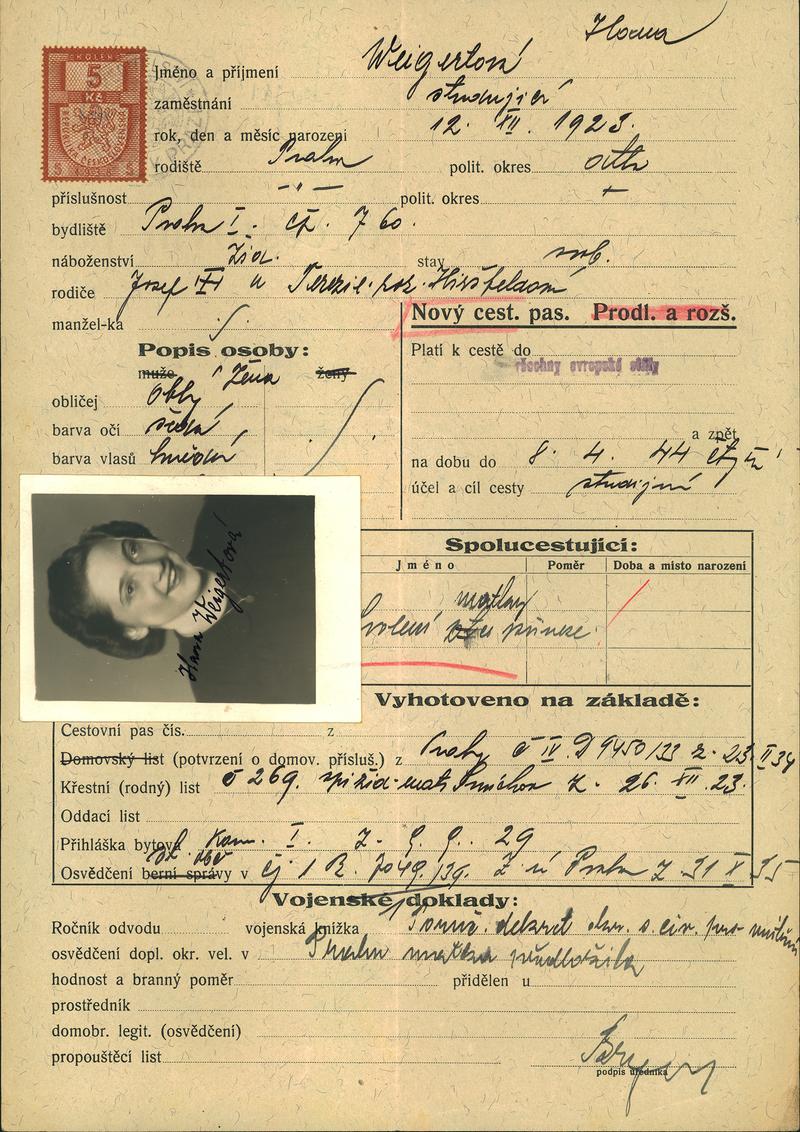 Hana
KOLEK
5
Kč
Jméno a příjmení Weigertová
zaměstnání studující
rok, den a měsíc narození 12. XII. 1923.
rodiště Praha polit. okres
příslušnost - " - polit. okres
bydliště Praha I. čp. 760.
náboženství žid. stav svob.
rodiče Josef a Terezie roz.
manžel-ka
Nový cest. pas. Prodl. a rozš.
Popis osoby:
muže Žena ženy
Platí k cestě do
všechny evropské státy
obličej oblý
barva očí šedá
a zpět
barva vlasů hnědá
na dobu do 8. 4. 44
účel a cíl cesty studijní
Spolucestující:
Jméno Poměr Doba a místo narození
matky
svolení otce přinese.
Hana Weigertová
Vyhotoveno na základě:
Cestovní pas čís. z
Domovský list (potvrzení o domov. přísluš.) z Prahy č IV. D 9450/33 z. 23. II 34
Křestní (rodný) list č 269. žid. mat. Smíchov z. 26. XII. 23.
Oddací list
Přihláška bytová Kom. I. z. 9. 9. 29
Osvědčení berní správy v čj 1 R. z Praha z 31 X 35
Vojenské doklady:
Ročník odvodu vojenská knížka dekret
osvědčení dopl. okr. vel. v Praha matka předložila
hodnost a branný poměr přidělen u
prostředník
domobr. legit. (osvědčení)
propouštěcí list
podpis úředníka